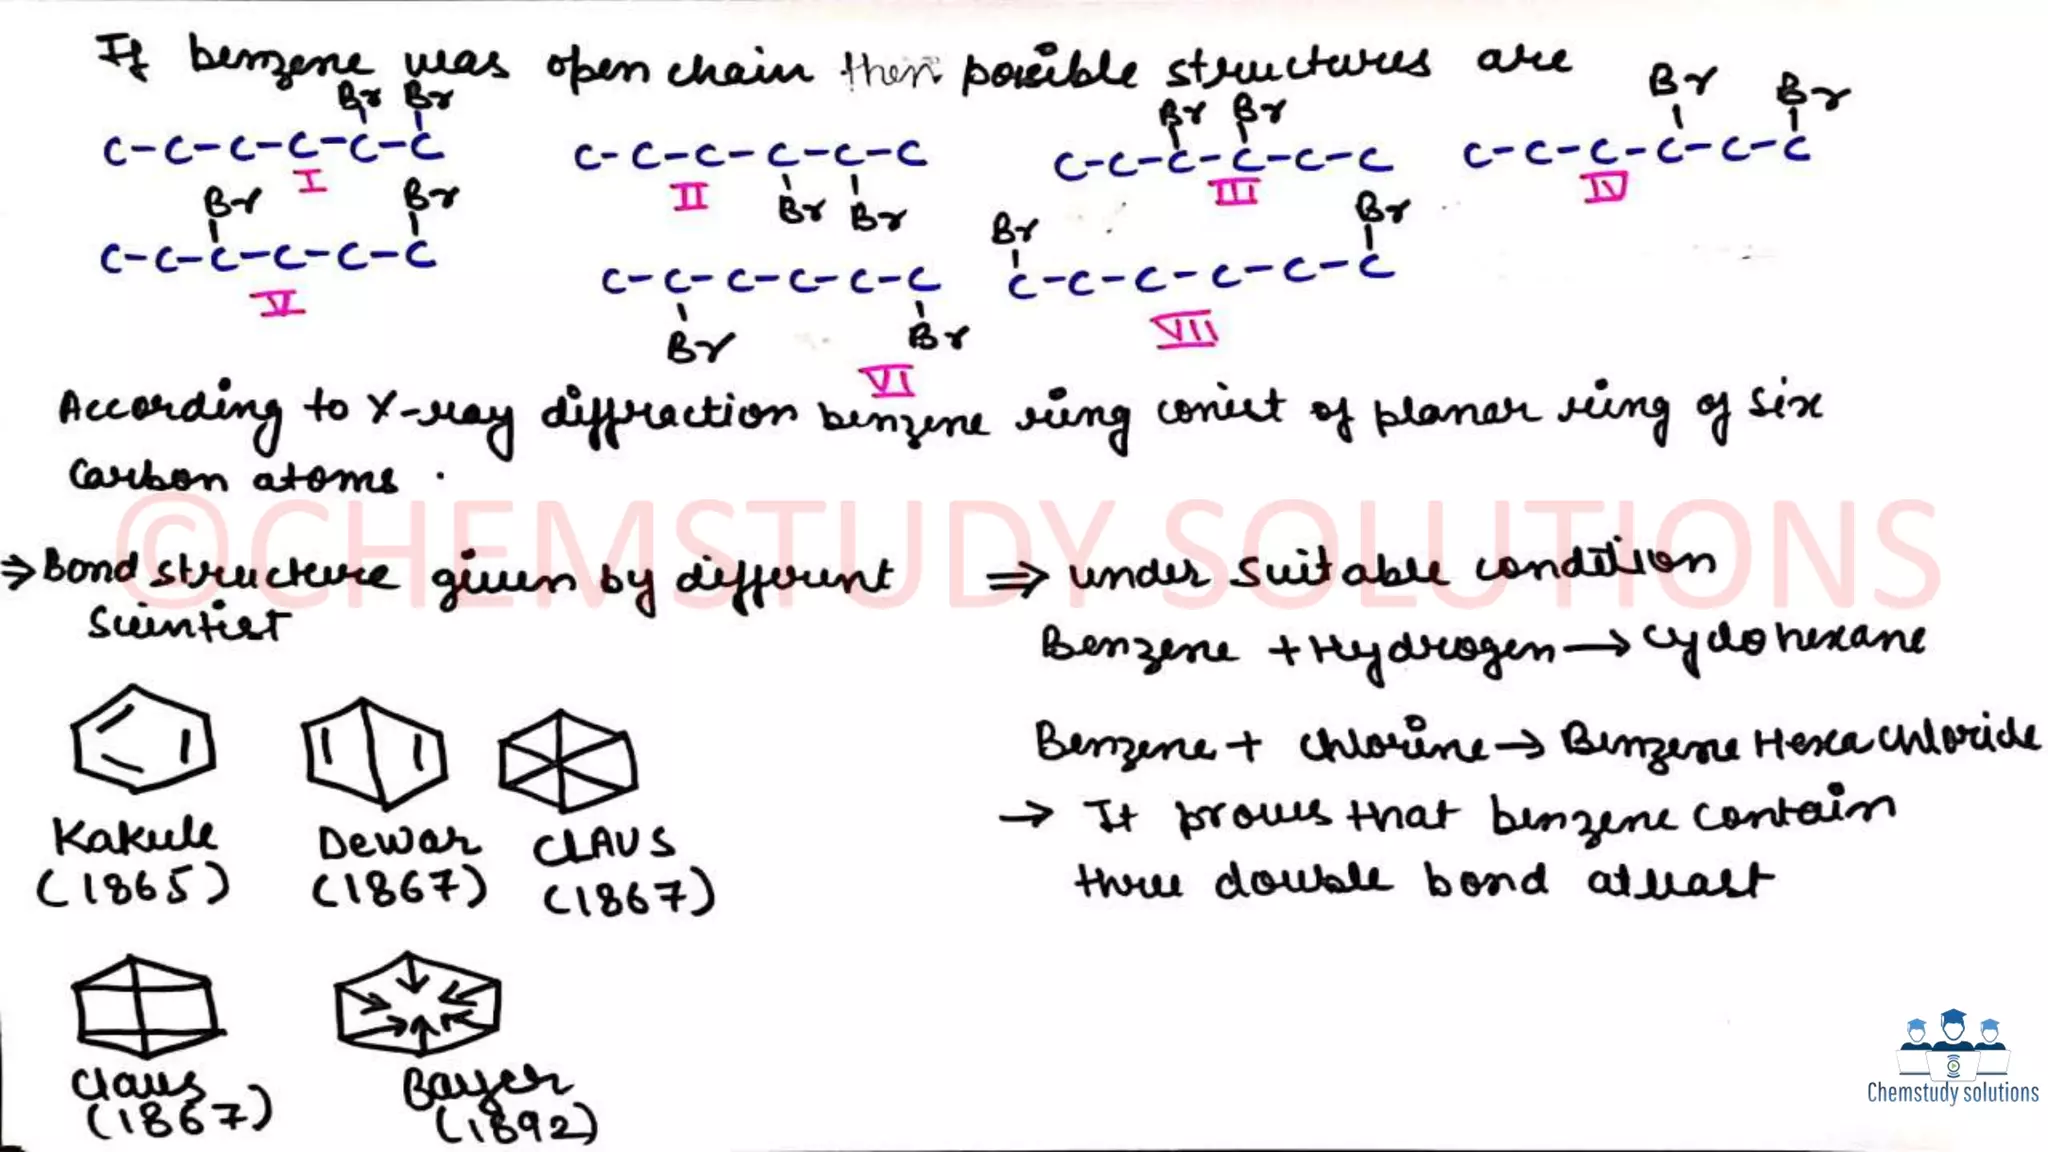 If benzene was open chain then possible structures are
Br Br
C-C-C-C-C-C
I
C-C-C-C-C-C
Br Br
II
Br Br
C-C-C-C-C-C
III
Br Br
C-C-C-C-C-C
IV
Br Br
C-C-C-C-C-C
V
C-C-C-C-C-C
Br Br
VI
Br Br
C-C-C-C-C-C-C
VII
According to X-ray diffraction benzene ring consist of planar ring of six
carbon atoms.
©CHEMSTUDY SOLUTIONS
⇒ Bond structure given by different
Scientist
Kakule
(1865)
Dewar
(1867)
CLAUS
(1867)
Claus
(1867)
Bayer
(1892)
⇒ under suitable condition
Benzene + Hydrogen → Cyclohexane
Benzene + chlorine → Benzene Hexachloride
→ It proves that benzene contain
three double bond atleast
Chemstudy solutions